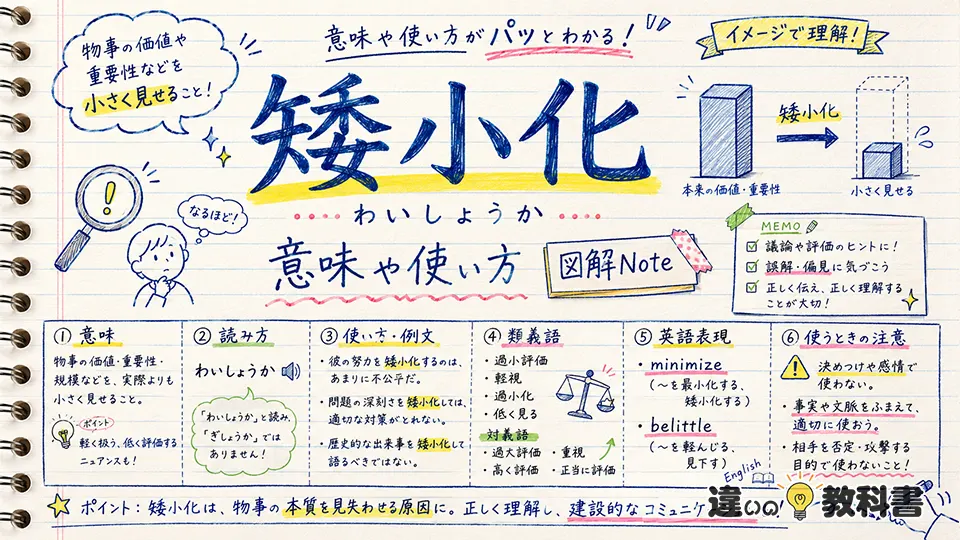 物事の価値や
重要性などを
小さく見せること!
意味や使い方がパッとわかる!
イメージで理解!
矮小化
わいしょうか
意味や使い方
図解Note
なるほど!
矮小化
本来の価値・重要性
小さく見せる
MEMO
議論や評価のヒントに!
誤解・偏見に気づこう
正しく伝え、正しく理解する
ことが大切!
① 意味
物事の価値・重要性・
規模などを、実際よりも
小さく見せること。
ポイント
軽く扱う、低く評価する
ニュアンスも!
② 読み方
わいしょうか
「わいしょうか」と読み、
「ぎしょうか」では
ありません!
③ 使い方・例文
・彼の努力を矮小化するのは、
あまりに不公平だ。
・問題の深刻さを矮小化しては、
適切な対策がとれない。
・歴史的な出来事を矮小化して
語るべきではない。
④ 類義語
・過小評価
・軽視
・過小化
・低く見る
対義語
・過大評価 ・重視
・高く評価 ・正当に評価
⑤ 英語表現
・minimize
(〜を最小化する、
矮小化する)
・belittle
(〜を軽んじる、
見下す)
English
⑥ 使うときの注意
決めつけや感情で
使わない。
・事実や文脈をふまえて、
適切に使おう。
・相手を否定・攻撃する
目的で使わないこと!
ポイント:矮小化は、物事の本質を見失わせる原因に。正しく理解し、建設的なコミュニケ
違いの教科書